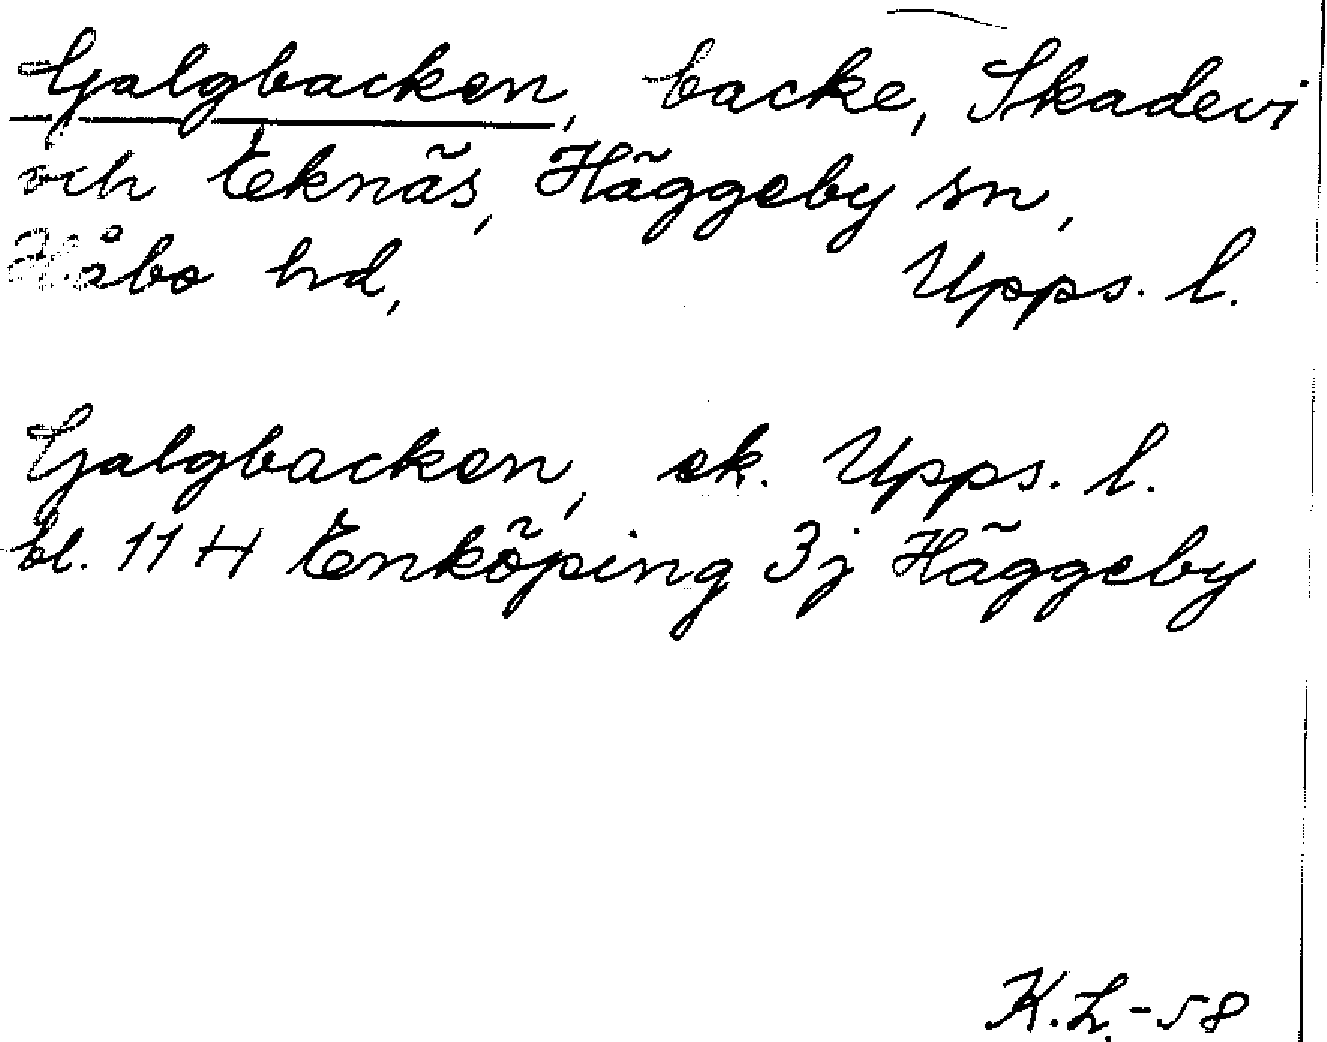 Galgbacken, backe, Skadevi
och Eknäs, Häggeby sn,
Håbo hd, Upps. l.
Galgbacken, ek. Upps. l.
bl. 11 H Enköping 3j Häggeby
K.L.-58